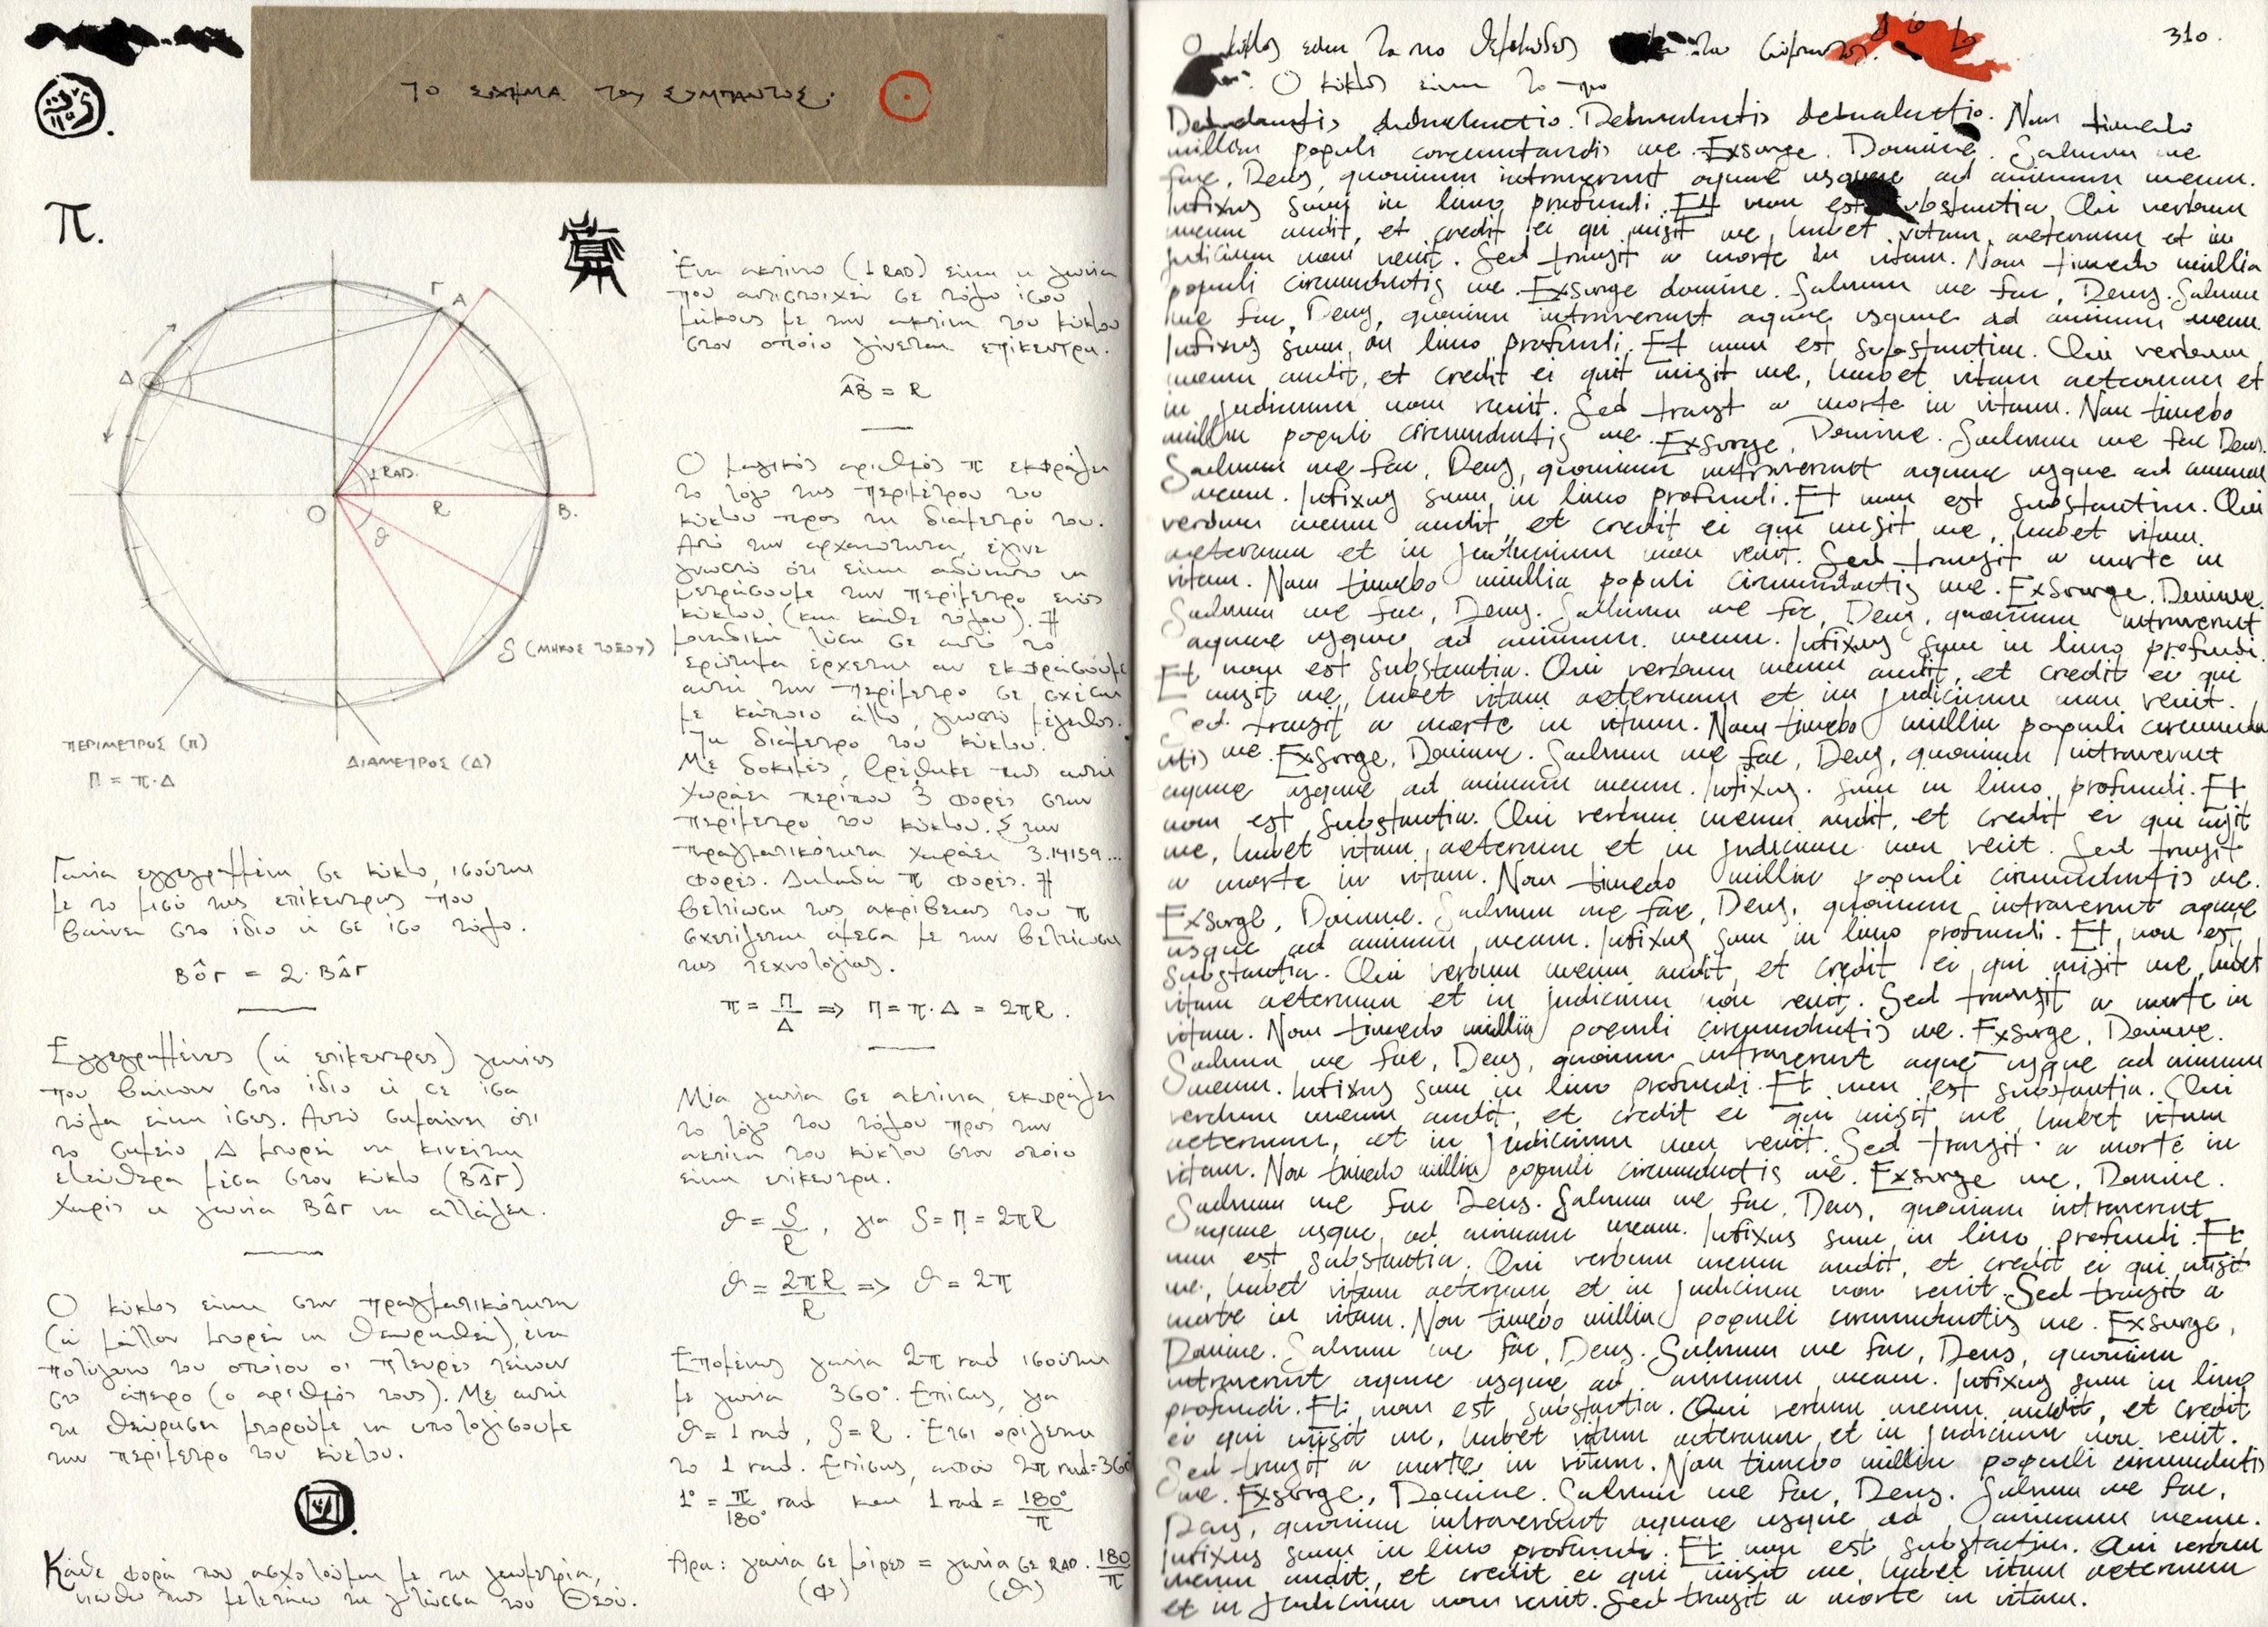 ΤΟ ΣΧΗΜΑ του ΣΥΜΠΑΝΤΟΣ.
π.
Γ
Α
Δ
1 RAD.
Ο
R
Β.
θ
S (ΜΗΚΟΣ ΤΟΞΟΥ)
ΠΕΡΙΜΕΤΡΟΣ (Π)
Π = π·Δ
ΔΙΑΜΕΤΡΟΣ (Δ)
Γωνία εγγεγραμμένη σε κύκλο, ισούται
με το μισό της επίκεντρης που
βαίνει στο ίδιο ή σε ίσο τόξο.
ΒÔΓ = 2·ΒΔ̂Γ
Εγγεγραμμένες (ή επίκεντρες) γωνίες
που βαίνουν στο ίδιο ή σε ίσα
τόξα είναι ίσες. Αυτό σημαίνει ότι
το σημείο Δ μπορεί να κινείται
ελεύθερα μέσα στον κύκλο (ΒΔΓ)
χωρίς η γωνία ΒΔ̂Γ να αλλάξει.
Ο κύκλος είναι στην πραγματικότητα
(ή μάλλον μπορεί να θεωρηθεί), ένα
πολύγωνο του οποίου οι πλευρές τείνουν
στο άπειρο (ο αριθμός τους). Με αυτή
τη θεώρηση μπορούμε να υπολογίσουμε
την περίμετρο του κύκλου.
Κάθε φορά που ασχολούμαι με τη γεωμετρία,
νιώθω πως μελετάω τη γλώσσα του Θεού.
Ένα ακτίνιο (1 RAD) είναι η γωνία
που αντιστοιχεί σε τόξο ίσου
μήκους με την ακτίνα του κύκλου
στον οποίο γίνεται επίκεντρη.
ΑΒ = R
Ο μαγικός αριθμός π εκφράζει
το λόγο της περιμέτρου του
κύκλου προς τη διάμετρό του.
Από την αρχαιότητα, έγινε
γνωστό ότι είναι αδύνατο να
μετρήσουμε την περίμετρο ενός
κύκλου (και κάθε τόξου). Η
μοναδική λύση σε αυτό το
ερώτημα έρχεται αν εκφράσουμε
αυτή την περίμετρο σε σχέση
με κάποιο άλλο, γνωστό μέγεθος.
Τη διάμετρο του κύκλου.
Με δοκιμές, βρέθηκε πως αυτή
χωράει περίπου 3 φορές στην
περίμετρο του κύκλου. Στην
πραγματικότητα χωράει 3.14159...
φορές. Δηλαδή π φορές. Η
βελτίωση της ακρίβειας του π
σχετίζεται άμεσα με την βελτίωση
της τεχνολογίας.
π = Π/Δ => Π = π·Δ = 2πR.
Μία γωνία σε ακτίνια, εκφράζει
το λόγο του τόξου προς την
ακτίνα του κύκλου στον οποίο
είναι επίκεντρη.
θ = S/R, για S = Π = 2πR
θ = 2πR/R => θ = 2π
Επομένως γωνία 2π rad ισούται
με γωνία 360°. Επίσης, για
θ = 1 rad, S = R. Έτσι ορίζεται
το 1 rad. Επίσης, αφού 2π rad = 360
1° = π/180° rad και 1 rad = 180°/π
Άρα: γωνία σε μοίρες = γωνία σε RAD · 180/π
(φ) (θ)
310.
Ο κύκλος είναι το πιο θεμελιώδες του Σύμπαντος.
Ο κύκλος είναι το πιο
Non timebo
millia populi circumdantis me. Exsurge, Domine. Salvum me
fac, Deus, quoniam intraverunt aquae usque ad animam meam.
Infixus sum in limo profundi. Et non est substantia. Qui verbum
meum audit, et credit ei qui misit me, habet vitam aeternam et in
judicium non venit. Sed transit a morte in vitam. Non timebo millia
populi circumdantis me. Exsurge domine. Salvum me fac, Deus. Salvum
me fac, Deus, quoniam intraverunt aquae usque ad animam meam
Infixus sum in limo profundi. Et non est substantia. Qui verbum
meum audit, et credit ei qui misit me, habet vitam aeternam et
in judicium non venit. Sed transit a morte in vitam. Non timebo
millia populi circumdantis me. Exsurge, Domine. Salvum me fac Deus.
Salvum me fac, Deus, quoniam intraverunt aquae usque ad animam
meam. Infixus sum in limo profundi. Et non est substantia. Qui
verbum meum audit, et credit ei qui misit me, habet vitam
aeternam et in judicium non venit. Sed transit a morte in
vitam. Non timebo millia populi circumdantis me. Exsurge, Domine.
Salvum me fac, Deus. Salvum me fac, Deus, quoniam intraverunt
aquae usque ad animam meam. Infixus sum in limo profundi.
Et non est substantia. Qui verbum meum audit, et credit ei qui
misit me, habet vitam aeternam et in judicium non venit.
Sed transit a morte in vitam. Non timebo millia populi circumda
ntis me. Exsurge, Domine. Salvum me fac, Deus, quoniam intraverunt
aquae usque ad animam meam. Infixus sum in limo profundi. Et
non est substantia. Qui verbum meum audit, et credit ei qui misit
me, habet vitam aeternam et in judicium non venit. Sed transit
a morte in vitam. Non timebo millia populi circumdantis me.
Exsurge, Domine. Salvum me fac, Deus, quoniam intraverunt aquae
usque ad animam meam. Infixus sum in limo profundi. Et non est
substantia. Qui verbum meum audit, et credit ei qui misit me, habet
vitam aeternam et in judicium non venit. Sed transit a morte in
vitam. Non timebo millia populi circumdantis me. Exsurge, Domine.
Salvum me fac, Deus, quoniam intraverunt aquae usque ad animam
meam. Infixus sum in limo profundi. Et non est substantia. Qui
verbum meum audit, et credit ei qui misit me, habet vitam
aeternam, et in judicium non venit. Sed transit a morte in
vitam. Non timebo millia populi circumdantis me. Exsurge me, Domine.
Salvum me fac Deus. Salvum me fac, Deus, quoniam intraverunt
aquae usque ad animam meam. Infixus sum in limo profundi. Et
non est substantia. Qui verbum meum audit, et credit ei qui misit
me, habet vitam aeternam, et in judicium non venit. Sed transit a
morte in vitam. Non timebo millia populi circumdantis me. Exsurge,
Domine. Salvum me fac, Deus. Salvum me fac, Deus, quoniam
intraverunt aquae usque ad animam meam. Infixus sum in limo
profundi. Et non est substantia. Qui verbum meum audit, et credit
ei qui misit me, habet vitam aeternam, et in judicium non venit.
Sed transit a morte in vitam. Non timebo millia populi circumdantis
me. Exsurge, Domine. Salvum me fac, Deus. Salvum me fac,
Deus, quoniam intraverunt aquae usque ad animam meam.
Infixus sum in limo profundi. Et non est substantia. Qui verbum
meum audit, et credit ei qui misit me, habet vitam aeternam
et in judicium non venit. Sed transit a morte in vitam.